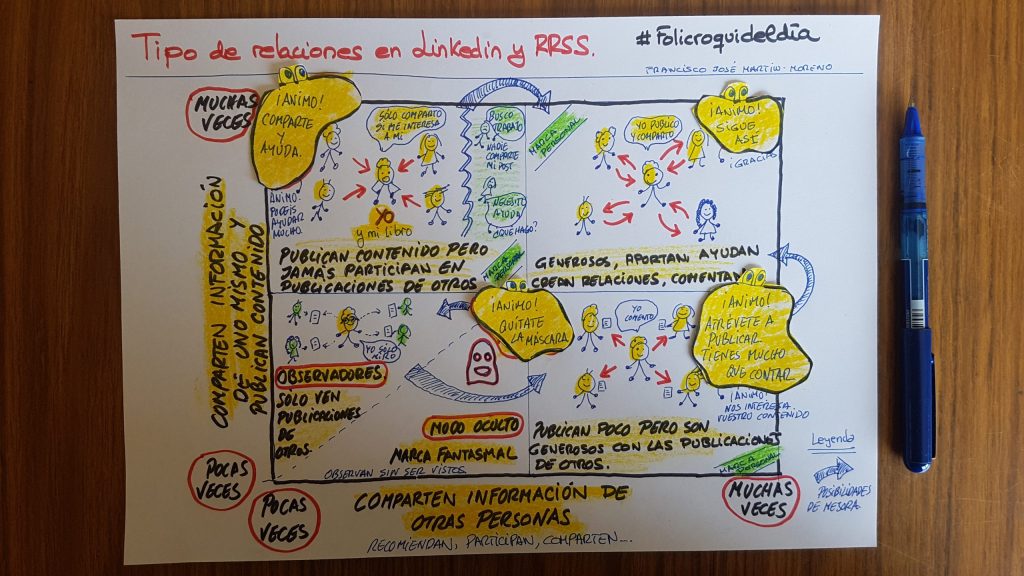 Tipo de relaciones en Linkedin y RRSS.
#Folicroquideldía
FRANCISCO JOSÉ MARTIN-MORENO
MUCHAS
VECES
¡ANIMO!
COMPARTE
Y
AYUDA.
SÓLO COMPARTO
SI ME INTERESA
A MI
BUSCO
TRABAJO
NADIE
COMPARTE
MI POST
NECESITO
AYUDA
¿QUÉ HAGO?
MARCA
PERSONAL
YO PUBLICO
Y COMPARTO
¡ANIMO!
SIGUE
ASÍ
¡GRACIAS
ANIMO!
PODEIS
AYUDAR
MUCHO.
YO
y mi libro
PUBLICAN CONTENIDO PERO
JAMÁS PARTICIPAN EN
PUBLICACIONES DE OTROS
MARCA
GENEROSOS, APORTAN AYUDAN
CREAN RELACIONES, COMENTAN
COMPARTEN INFORMACIÓN
DE UNO MISMO Y
PUBLICAN CONTENIDO
YO SOLO
MIRO
OBSERVADORES
SOLO VEN
PUBLICACIONES
DE
OTROS.
¡ANIMO!
QUITATE
LA MÁSCARA
MODO OCULTO
MARCA FANTASMAL
OBSERVAN SIN SER VISTOS
YO
COMENTO
¡ANIMO!
ATRÉVETE A
PUBLICAR
TIENES MUCHO
QUE CONTAR
¡ANIMO!
NOS INTERESA
VUESTRO CONTENIDO
PUBLICAN POCO PERO SON
GENEROSOS CON LAS PUBLICACIONES
DE OTROS.
MARCA
PERSONAL
Leyenda
POSIBILIDADES
DE MEJORA.
POCAS
VECES
POCAS
VECES
COMPARTEN INFORMACIÓN DE
OTRAS PERSONAS
RECOMIENDAN, PARTICIPAN, COMPARTEN...
MUCHAS
VECES